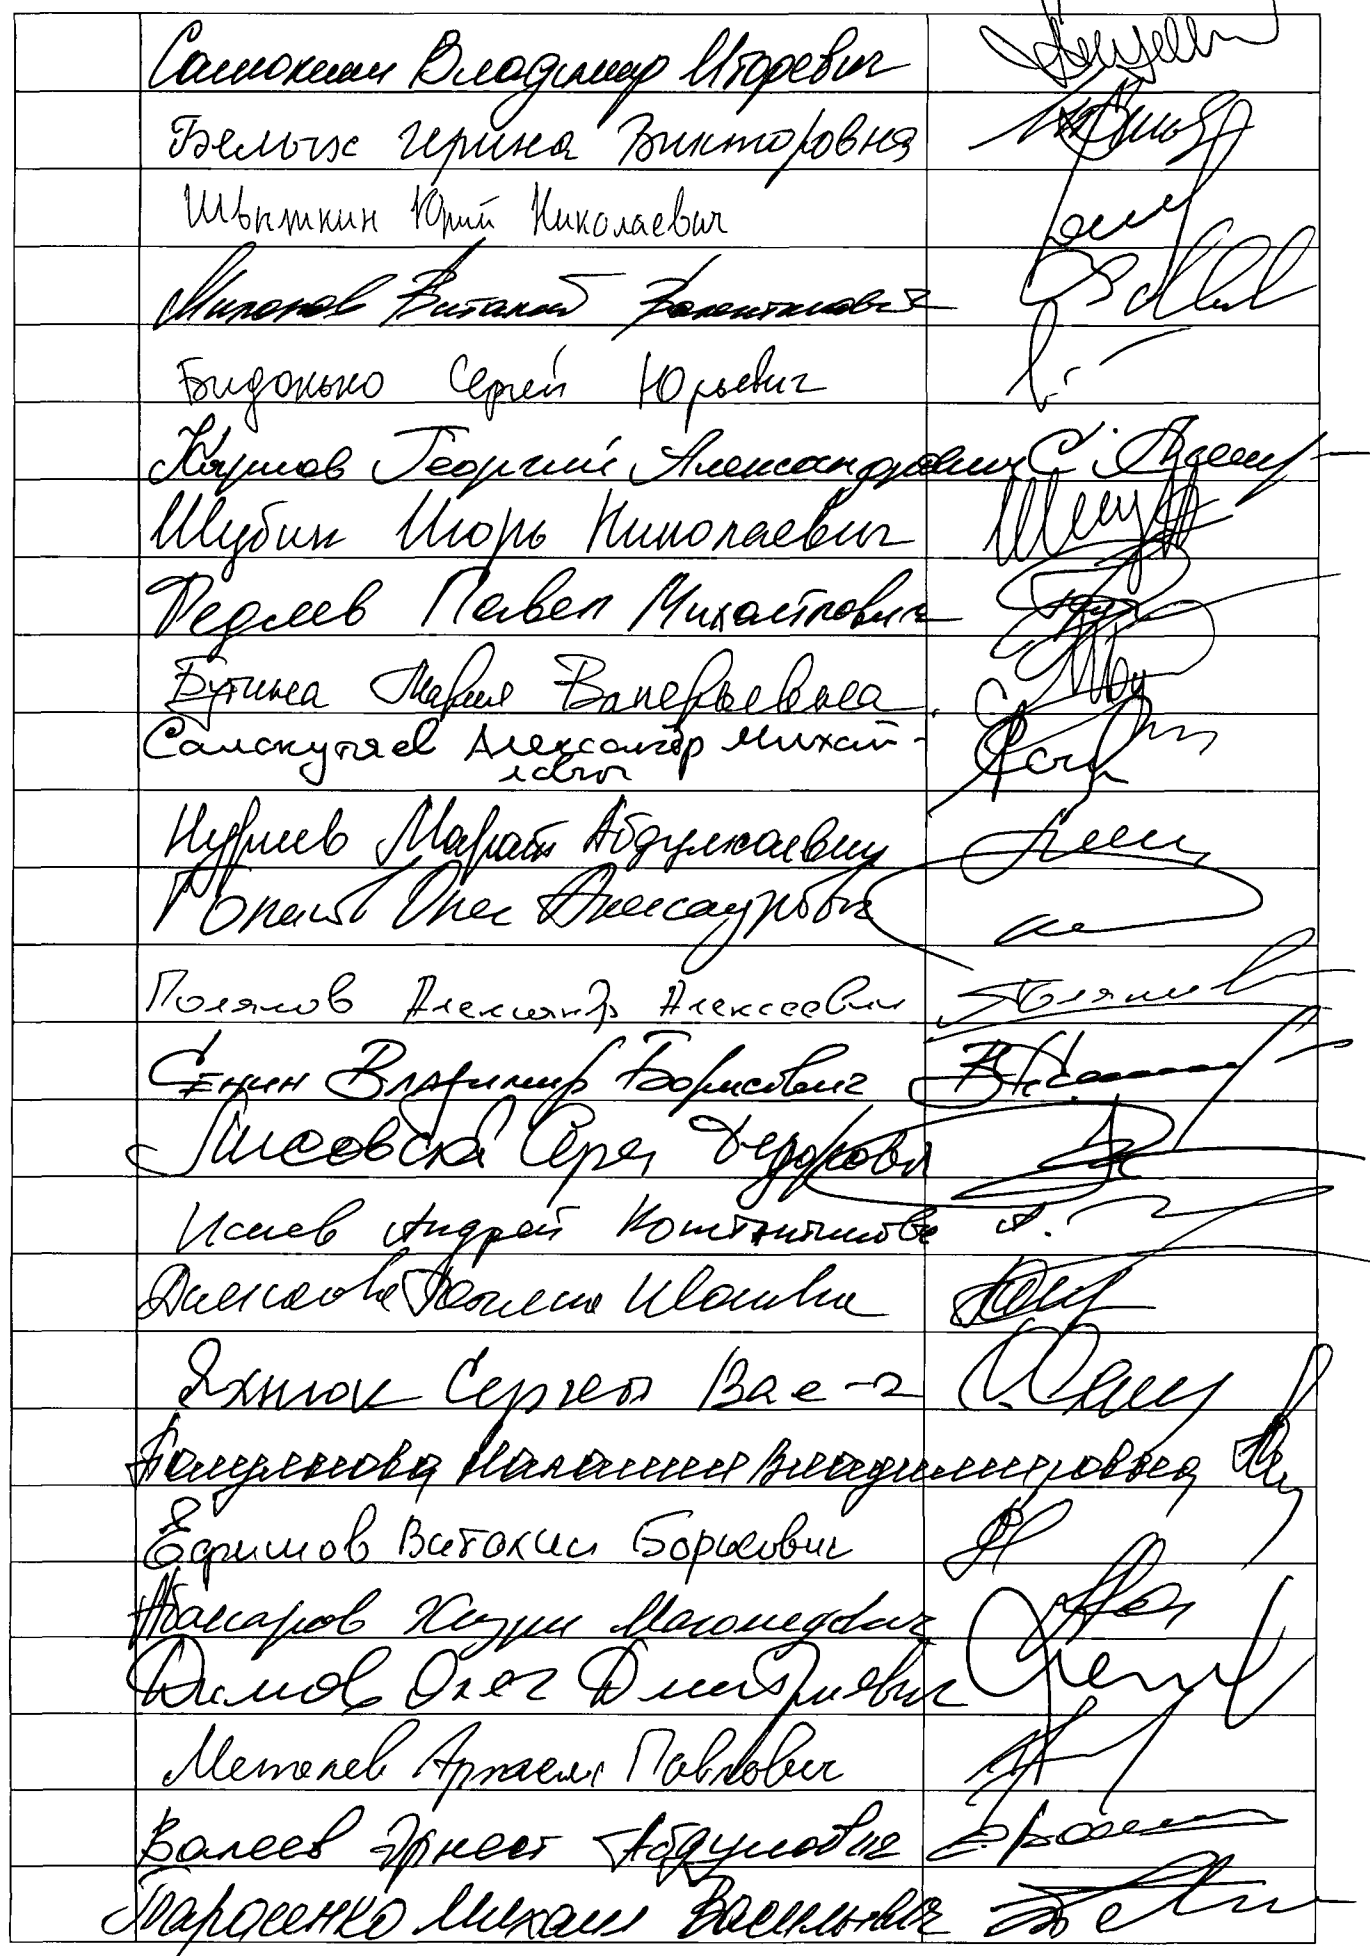 Самокиш Владимир Игоревич
Белых Ирина Викторовна
Швыткин Юрий Николаевич
Миронов Виталий Валентинович
Бидонько Сергей Юрьевич
Карлов Георгий Александрович
Шубин Игорь Николаевич
Федяев Павел Михайлович
Бутина Мария Валерьевна
Самокутяев Александр Михай-
лович
Нуриев Марат Абдулхаевич
Олег Александрович
Поляков Александр Алексеевич
Сенин Владимир Борисович
Лисовский Сергей Федорович
Исаев Андрей Константинов
Ивановна
Яхнюк Сергей Вас-ч
Полуянова Наталия Владимировна
Ефимов Виталий Борисович
Абакаров Хизри Магомедович
Димов Олег Дмитриевич
Метелев Артем Павлович
Валеев Эрнест Абдулович
Тарасенко Михаил Васильевич